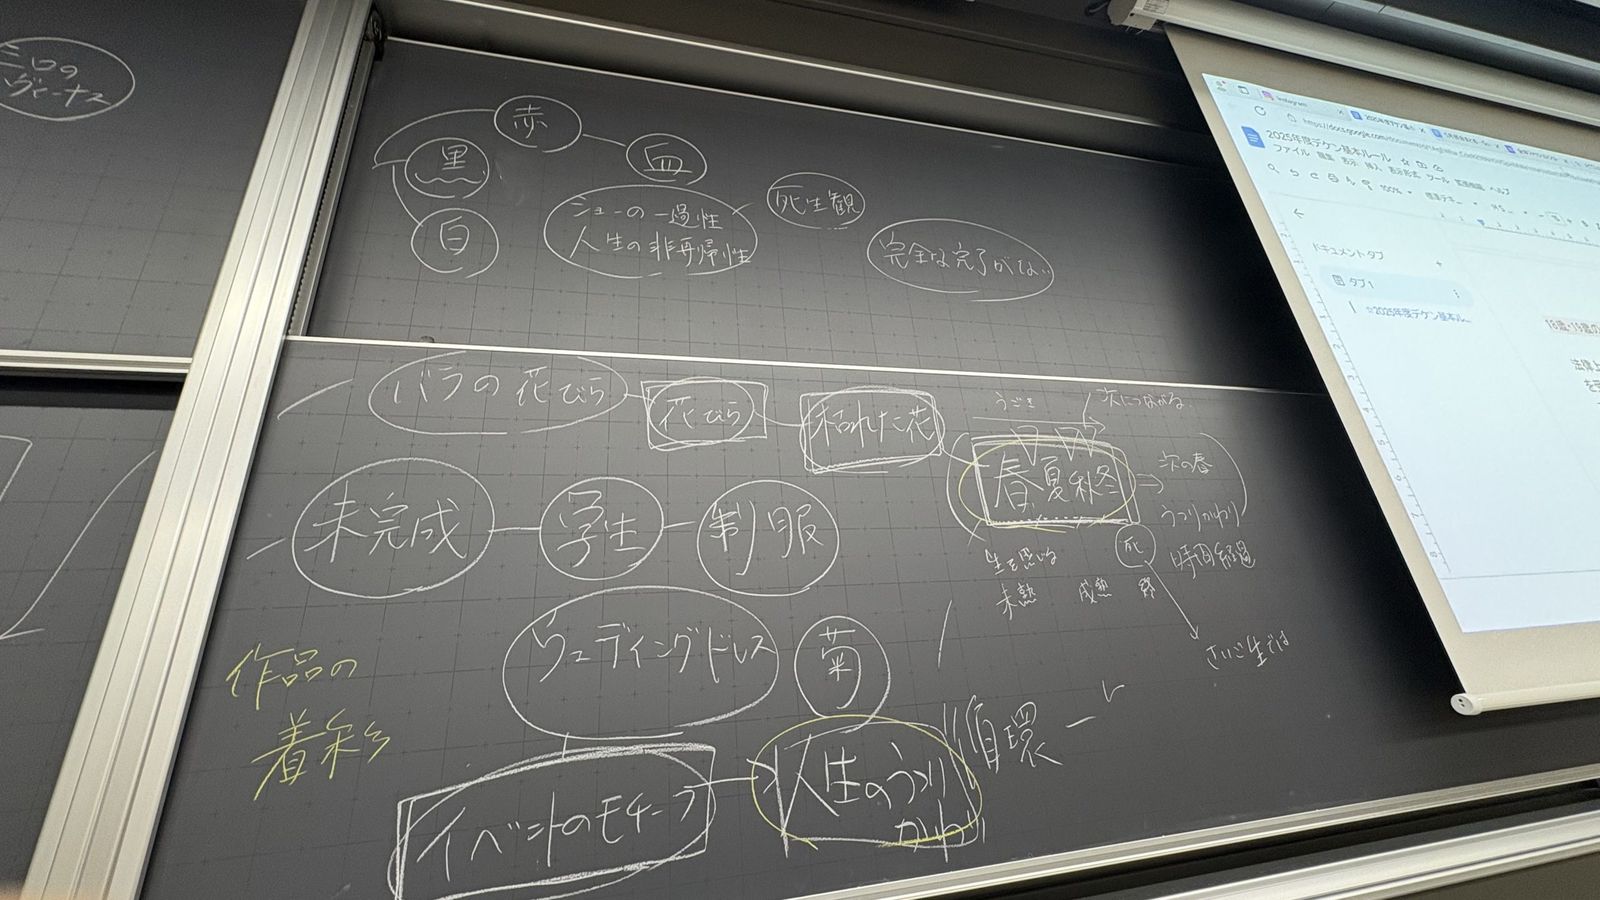 ミロの
ヴィーナス
赤
黒
血
白
ショーの一過性
人生の非再帰性
死生観
完全な完了がない
バラの花びら
花びら
枯れた花
うごき
次につながる
春夏秋冬
次の春
うつりかわり
未完成
学生
制服
生を感じる
死
時間経過
未熟
成熟
さいご生では
ウェディングドレス
菊
作品の
着彩
イベントのモチーフ
人生のうつり
かわり
循環
Instagram
2025年度デケン基本ルール
ファイル 編集 表示 挿入 表示形式 ツール 拡張機能 ヘルプ
100%
ドキュメントタブ
タブ1
☆2025年度デケン基本ル...
18歳・19歳の
法律上